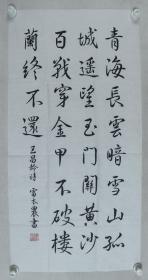 青海長雲暗雪山孤
城遥望玉門關黄沙
百戰穿金甲不破樓
蘭終不還
王昌齡詩 雷本農書